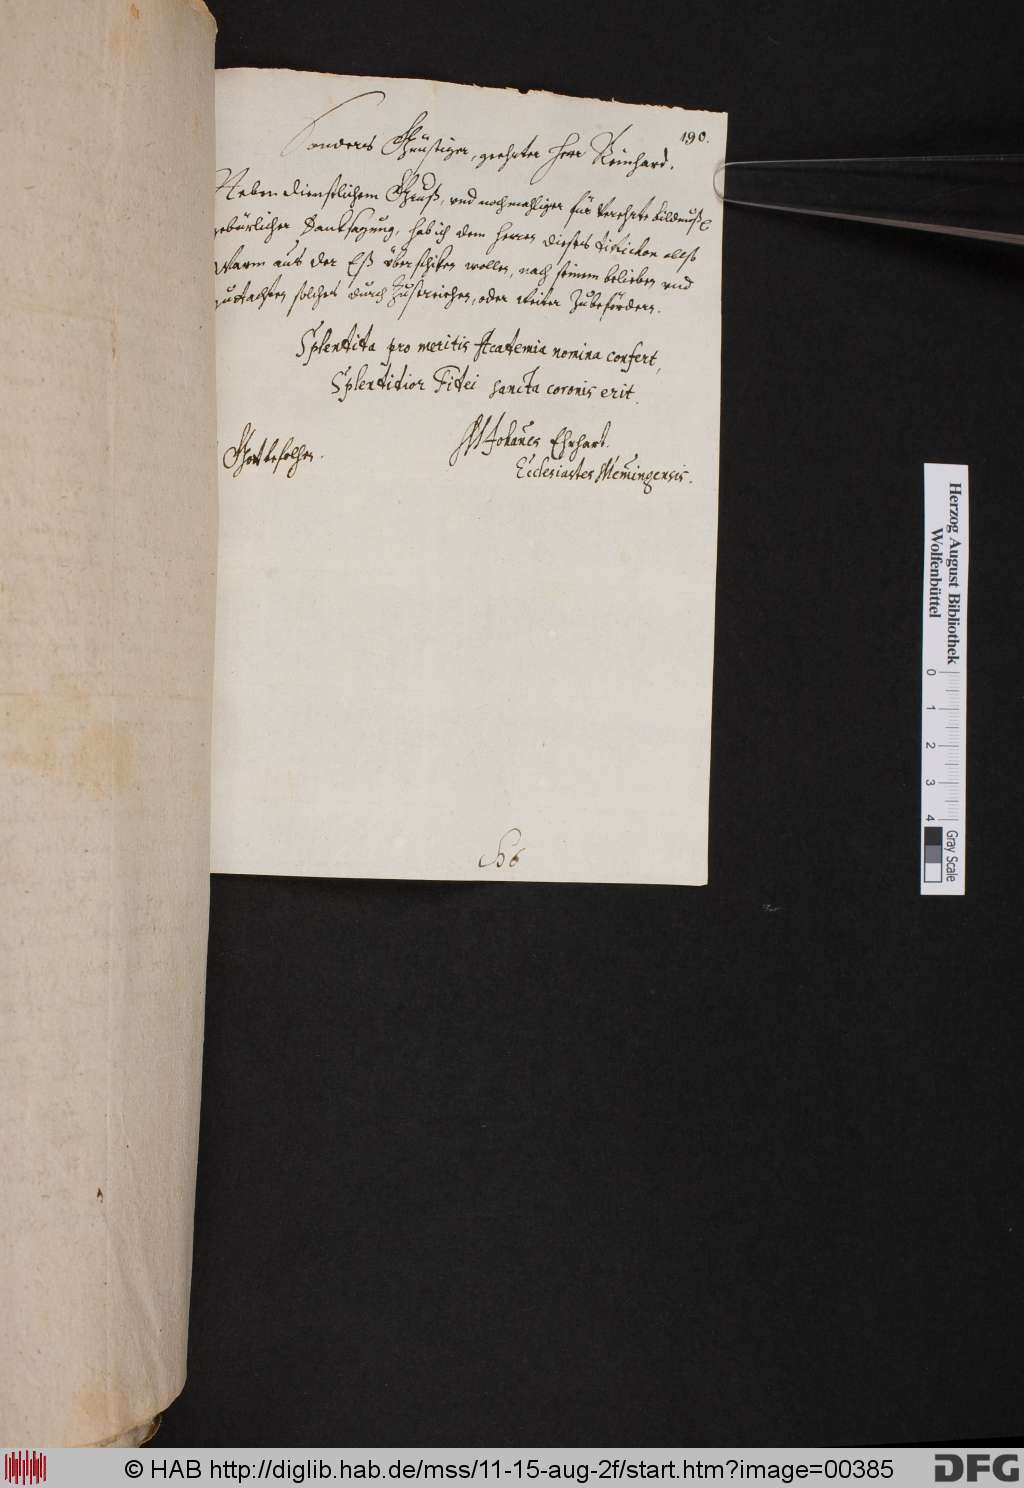 190.
Sonders Günstiger, geehrter Herr Reinhard.
Neben dienstlichem Gruß, und nochmahliger für verehrte bildnuß
gebürlicher Danksagung, hab ich dem Herren dieses
warm aus der Eß überschiken wollen, nach seinem belieben und
solches durch Zustreichen, oder weiter Zubefördern.
Splentita pro meritis Acatemia nomina confert,
Splentitior Fitei sancta coronis erit.
Gott befolhen.
M Johanes Ehrhart.
Ecclesiastes Memingensis.
Herzog August Bibliothek
Wolfenbüttel
0 1 2 3 4
Gray Scale
© HAB http://diglib.hab.de/mss/11-15-aug-2f/start.htm?image=00385
DFG